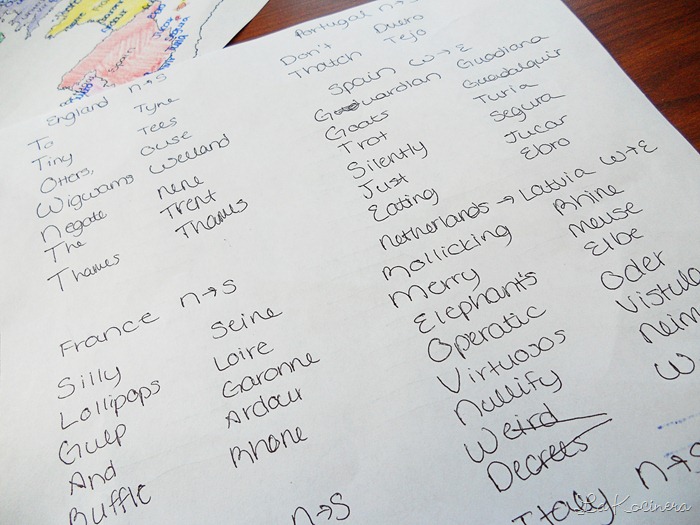 England n→s
To Tyne
Tiny Tees
Otters, Ouse
Wigwams Welland
Negate Nene
The Trent
Thames Thames
France n→s
Silly Seine
Lollipops Loire
Gulp Garonne
And Ardour
Ruffle Rhone
n→s
Portugal n→s
Don't Duero
Thatch Tejo
Spain W→E
Guardian Guadiana
Goats Guadalquir
Trot Turia
Silently Segura
Just Jucar
Eating Ebro
Netherlands → Latvia W→E
Rollicking Rhine
Merry Meuse
Elephants Elbe
Operatic Oder
Virtuosos Vistula
Nullify Neim
Weird W
Decrees
Italy n→s
LaKocinera